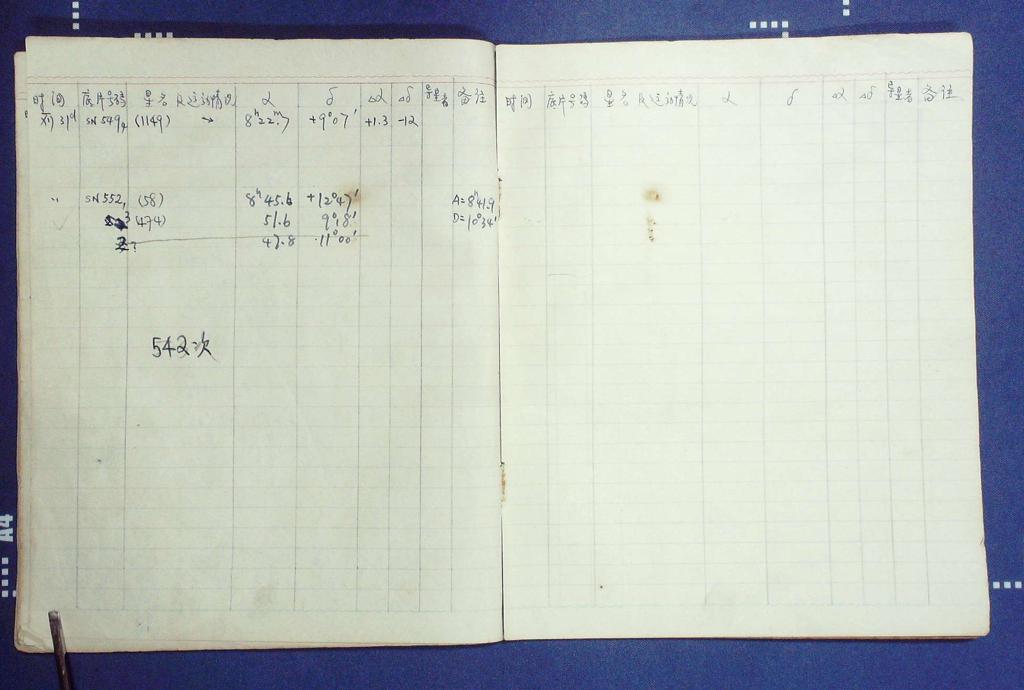 时间 底片号码 星名及运动情况 α δ Δα Δδ 导星者 备注
31ᵈ SN 549₄ (1149) → 8ʰ22ᵐ.7 +9°07′ +1.3 -12
〃 SN 552₁ (58) 8ʰ45.6 +12°47′ A=8ʰ41.9
(474) 51.6 9°18′ D=10°34′
2? 47.8 11°00′
542次
时间 底片号码 星名及运动情况 α δ Δα Δδ 导星者 备注
A4